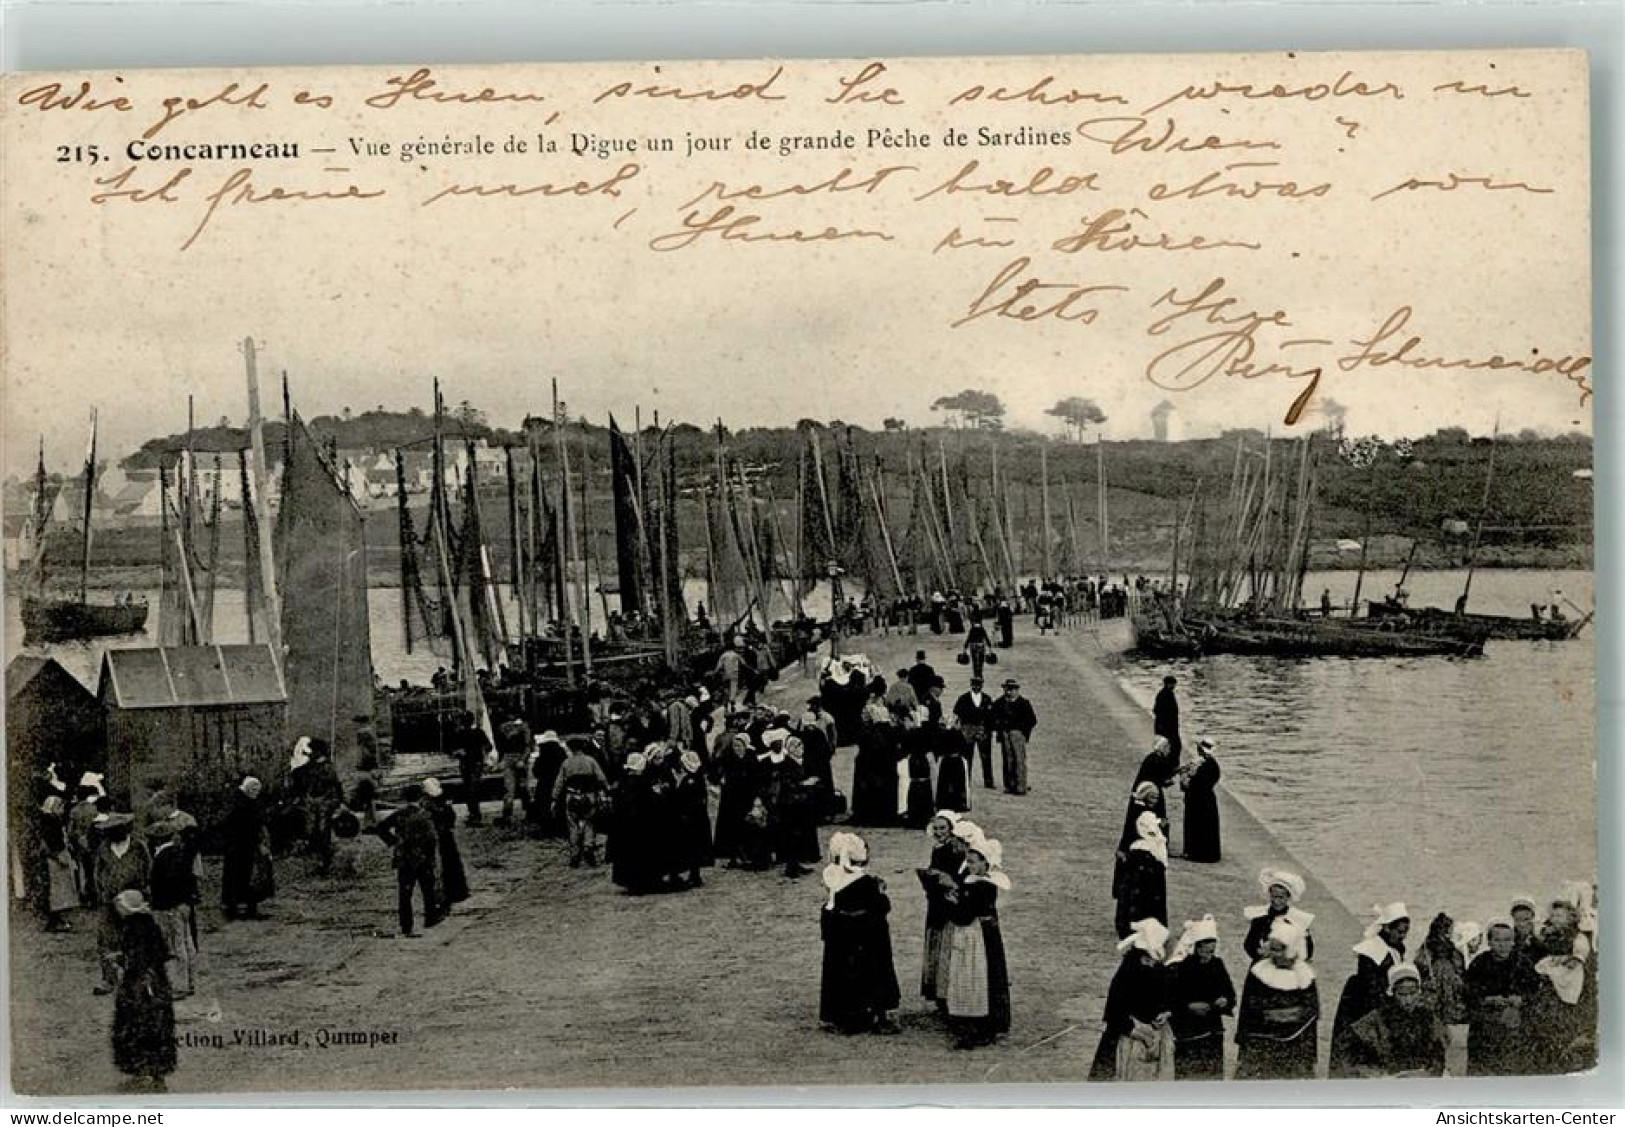 Wie geht es Ihnen, sind Sie schon wieder in
Wien?
215. Concarneau — Vue générale de la Digue un jour de grande Pêche de Sardines
Ich freue mich, recht bald etwas von
Ihnen zu hören.
Stets Ihre
Schneidler
ction Villard, Quimper
Ansichtskarten-Center